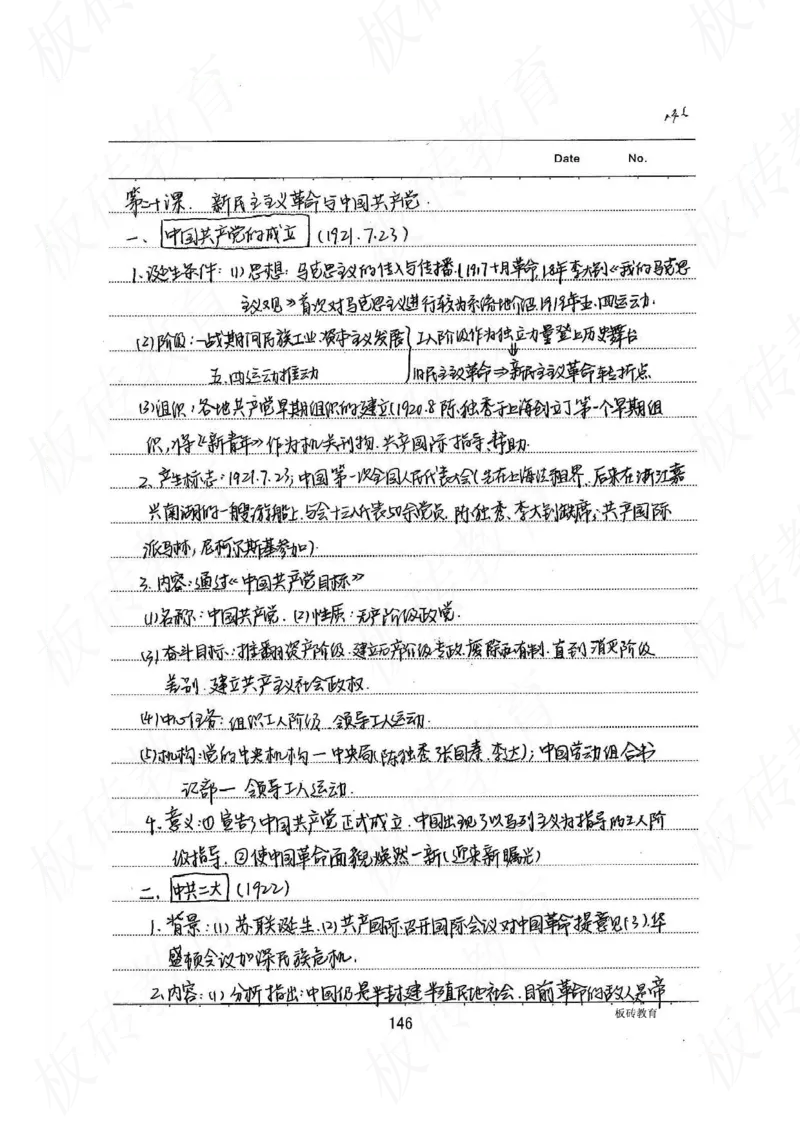 Date No.
第二十课. 新民主主义革命与中国共产党.
一、中国共产党的成立 (1921.7.23)
1.诞生条件: (1)思想: 马克思主义的传入与传播.(1917十月革命,18年李大钊《我的马克思
主义观》首次对马克思主义进行较为系统地介绍,1919年五.四运动.
(2)阶级:一战期间民族工业.资本主义发展 工人阶级作为独立力量登上历史舞台
五.四运动推动 旧民主主义革命⇒新民主主义革命转折点
(3)组织:各地共产党早期组织的建立(1920.8陈.独秀于上海创立了第一个早期组
织,将《新青年》作为机关刊物.共产国际指导、帮助.
2.产生标志:1921.7.23,中国第一次全国人民代表大会(先在上海法租界.后来在浙江嘉
兴南湖的一艘游船上.与会十三人代表50余党员.陈独秀、李大钊缺席;共产国际
派马林,尼柯尔斯基参加).
3.内容:通过《中国共产党目标》
(1)名称:中国共产党. (2)性质:无产阶级政党.
(3)奋斗目标:推翻资产阶级.建立无产阶级专政.废除私有制.直到消灭阶级
差别.建立共产主义社会政权.
(4)中心任务:组织工人阶级.领导工人运动.
(5)机构:党的中央机构一中央局(陈独秀.张国焘.李达);中国劳动组合书
记部一 领导工人运动.
4.意义:①宣告了中国共产党正式成立.中国出现了以马列主义为指导的工人阶
级指导.②使中国革命面貌焕然一新(迎来新曙光)
二、中共二大 (1922)
1.背景:(1)苏联诞生.(2)共产国际召开国际会议对中国革命提意见(3).华
盛顿会议加深民族危机.
2.内容:(1)分析指出:中国仍是半封建半殖民地社会.目前革命的敌人是帝
板砖教育
146
板砖教育